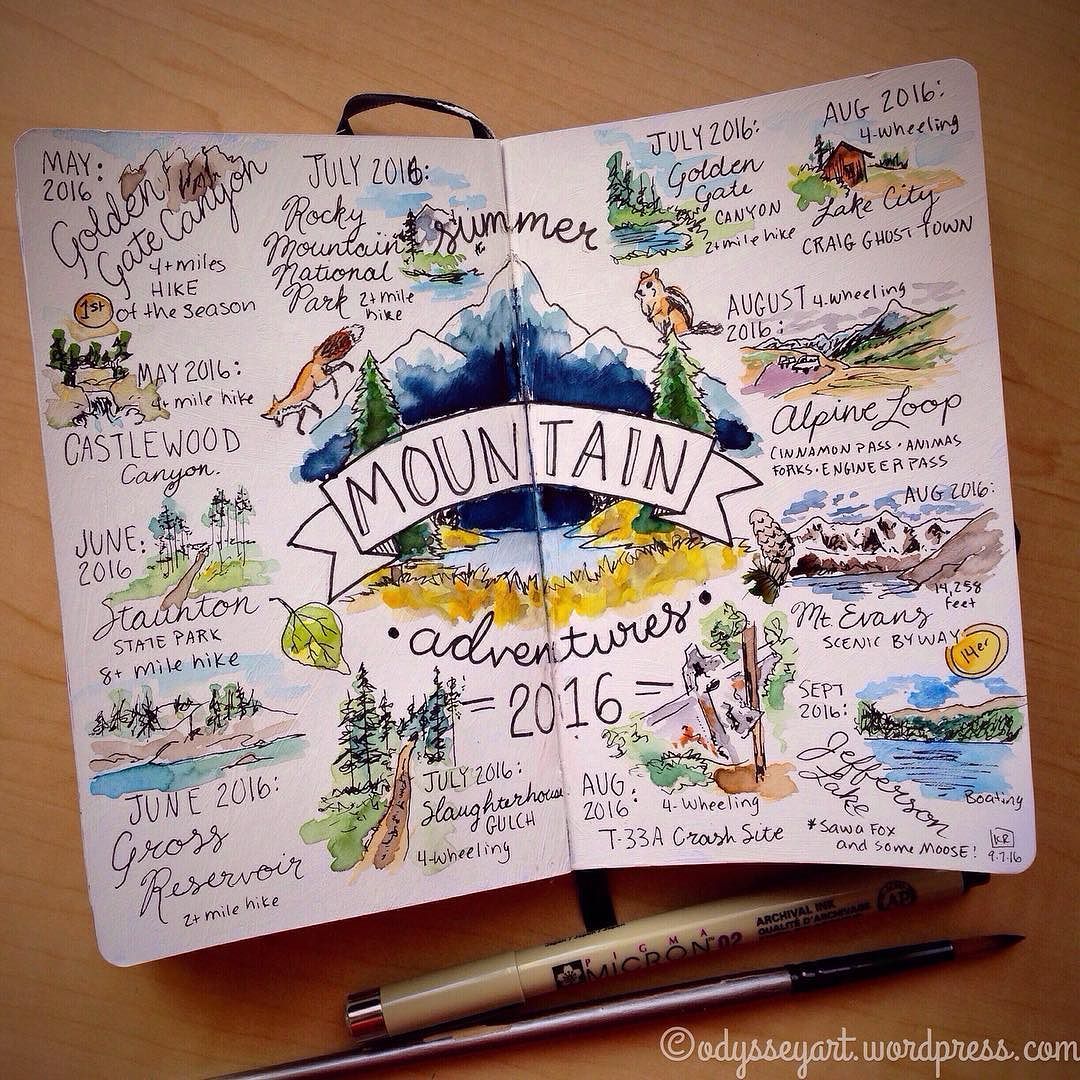 MAY:
2016
Golden
Gate Canyon
4+miles
HIKE
1st of the season
MAY 2016:
4+ mile hike
CASTLEWOOD
Canyon.
JUNE:
2016
Staunton
STATE PARK
8+ mile hike
JUNE 2016:
Gross
Reservoir
2+ mile hike
JULY 2016:
Rocky
Mountain
National
Park 2+ mile
hike
JULY 2016:
Slaughterhouse
GULCH
4-wheeling
summer
MOUNTAIN
• adventures •
= 2016 =
JULY 2016:
Golden
Gate
CANYON
2+ mile hike
AUG 2016:
4-wheeling
Lake City
CRAIG GHOST TOWN
AUGUST 4-wheeling
2016:
Alpine Loop
CINNAMON PASS • ANIMAS
FORKS • ENGINEER PASS
AUG 2016:
14,258
feet
Mt. Evans
SCENIC BYWAY
14er
AUG
2016:
4-wheeling
T-33A Crash Site
SEPT
2016:
Jefferson
Lake
Boating
*SAW A FOX
and some MOOSE!
KR
9.7.16
PIGMA
MICRON 02
ARCHIVAL INK
QUALITÉ D'ARCHIVAGE
AP
©odysseyart.wordpress.com